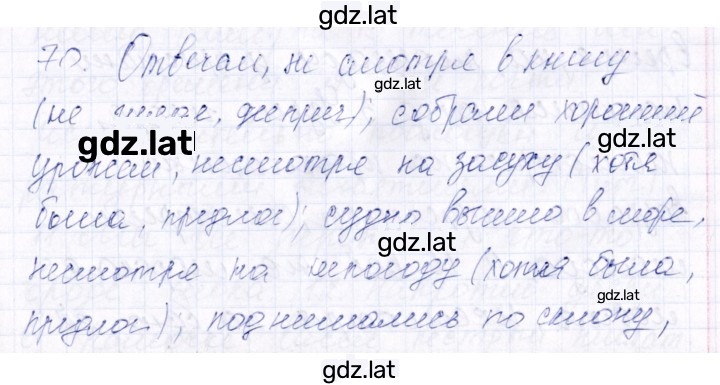 gdz.lat
70. Отвечал, не смотря в книгу
gdz.lat
(не дееприч); собрали хороший
gdz.lat
gdz.lat
урожай, несмотря на засуху (хотя
была, предлог); судно вышло в море,
gdz.lat
несмотря на непогоду (хотя была,
gdz.lat
предлог); поднимались по склону,
gdz.lat